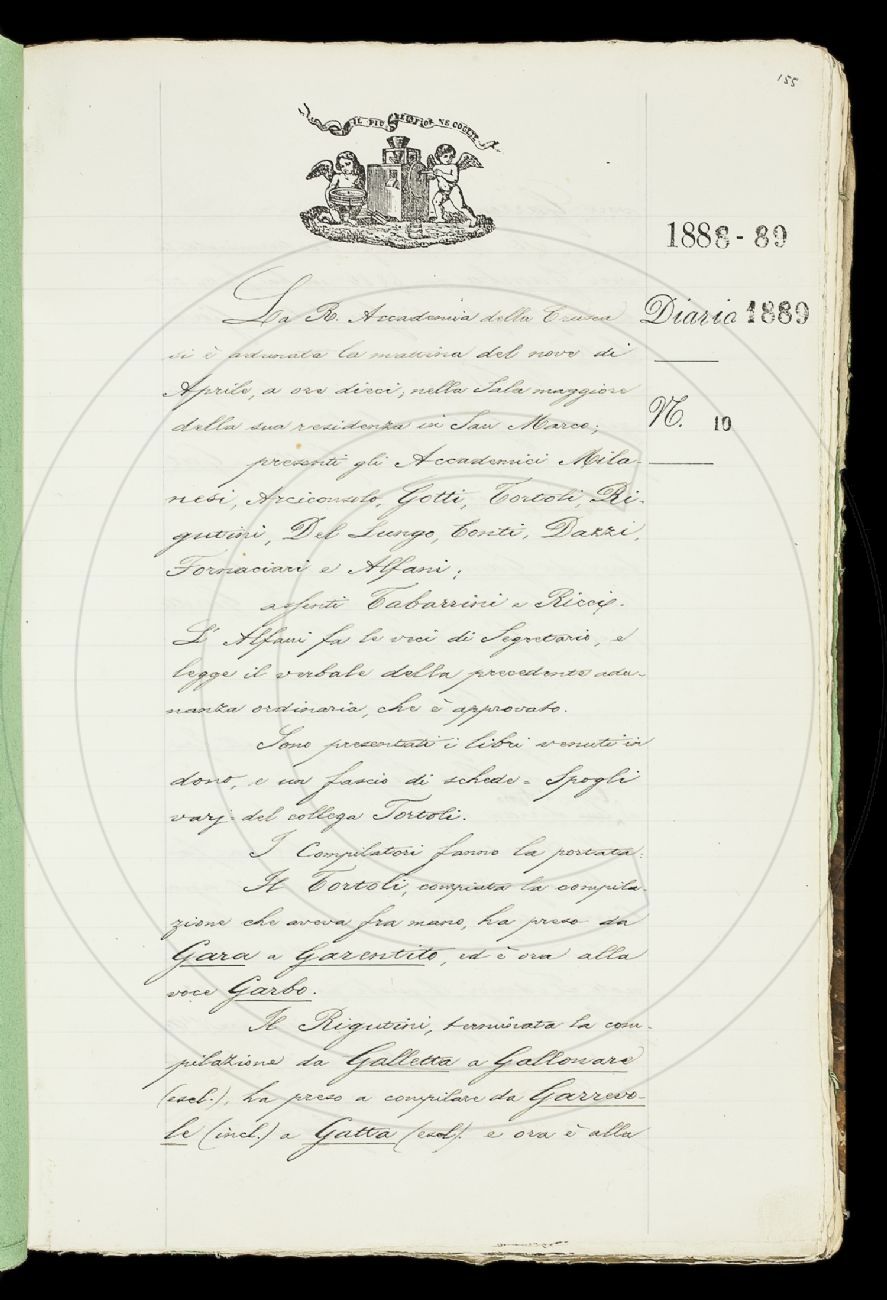 155
IL PIU BEL FIOR NE COGLIE
1888-89
La R. Accademia della Crusca
Diario 1889
si è adunata la mattina del nove di
Aprile, a ore dieci, nella Sala maggiore
della sua residenza in San Marco;
N. 10
presenti gli Accademici Mila-
nesi, Arciconsolo, Gotti, Tortoli, Ri-
gutini, Del Lungo, Conti, Dazzi,
Fornaciari e Alfani;
assenti Tabarrini e Ricci.
L'Alfani fa le veci di Segretario, e
legge il verbale della precedente adu-
nanza ordinaria, che è approvato.
Sono presentati i libri venuti in
dono, e un fascio di schede = Spogli
varj = del collega Tortoli.
I Compilatori fanno la portata:
Il Tortoli, compiuta la compila-
zione che aveva fra mano, ha preso da
Gara a Garentito, ed è ora alla
voce Garbo.
Il Rigutini, terminata la com-
pilazione da Galletta a Gallonare
(escl.), ha preso a compilare da Garrevo-
le (incl.) a Gatta (escl.) e ora è alla